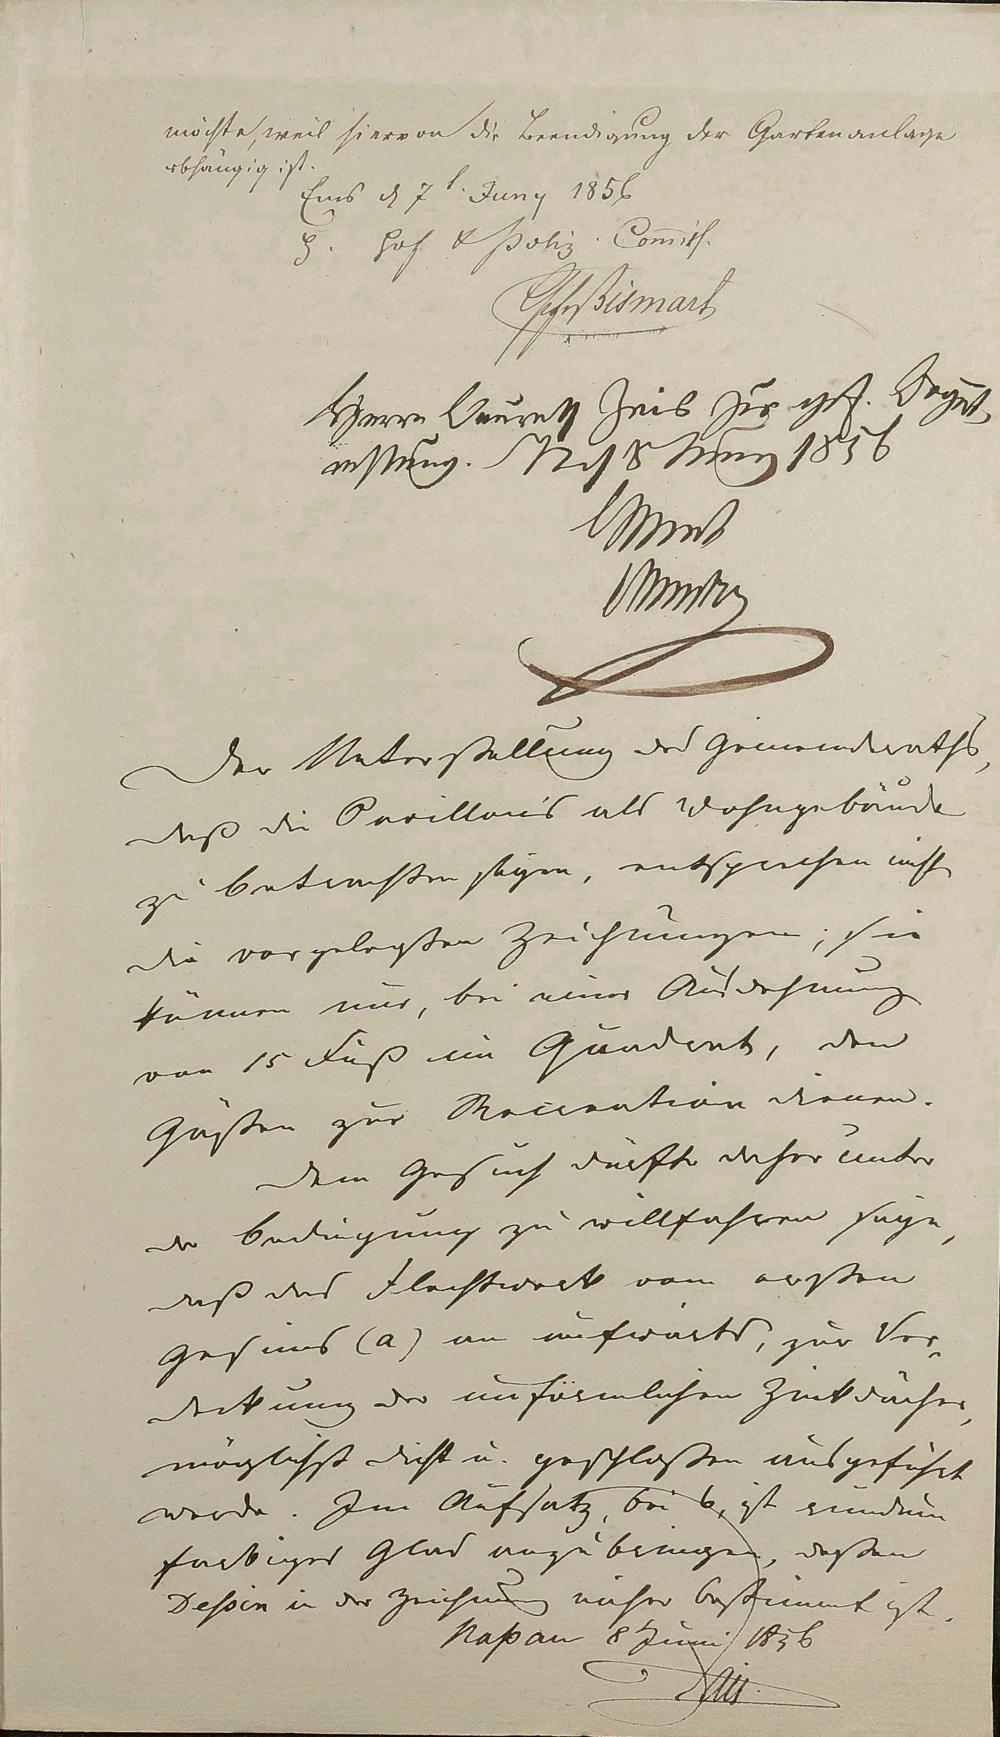 möchte, weil hiervon die Beendigung der Gartenanlage
abhängig ist.
Ems d 7t. Juny 1856
H. Hof & Poliz. Commiss.
Bismark
Herrn Baurath Zais zur gef. Begut-
achtung. N. d 8 Juny 1856
Der Unterstellung des Gemeinderaths,
daß die Pavillons als Wohngebäude
zu betrachten seyen, entsprechen nicht
die vorgelegten Zeichnungen; sie
können nur, bei einer Ausdehnung
von 15 Fuß im Quadrat, den
Gästen zur Recreation dienen.
Dem Gesuch dürfte daher unter
der Bedingung zu willfahren seyn,
daß das Flechtwerk vom ersten
Gesims (a) an aufwärts, zur Ver-
deckung der unförmlichen Zinkdächer,
möglichst dicht u. geschlossen ausgeführt
werde. Im Aufsatz, bei b, ist rundum
farbiges Glas anzubringen, dessen
Dessin in der Zeichnung näher bestimmt ist.
Nassau 8 Juni 1856
Zais.